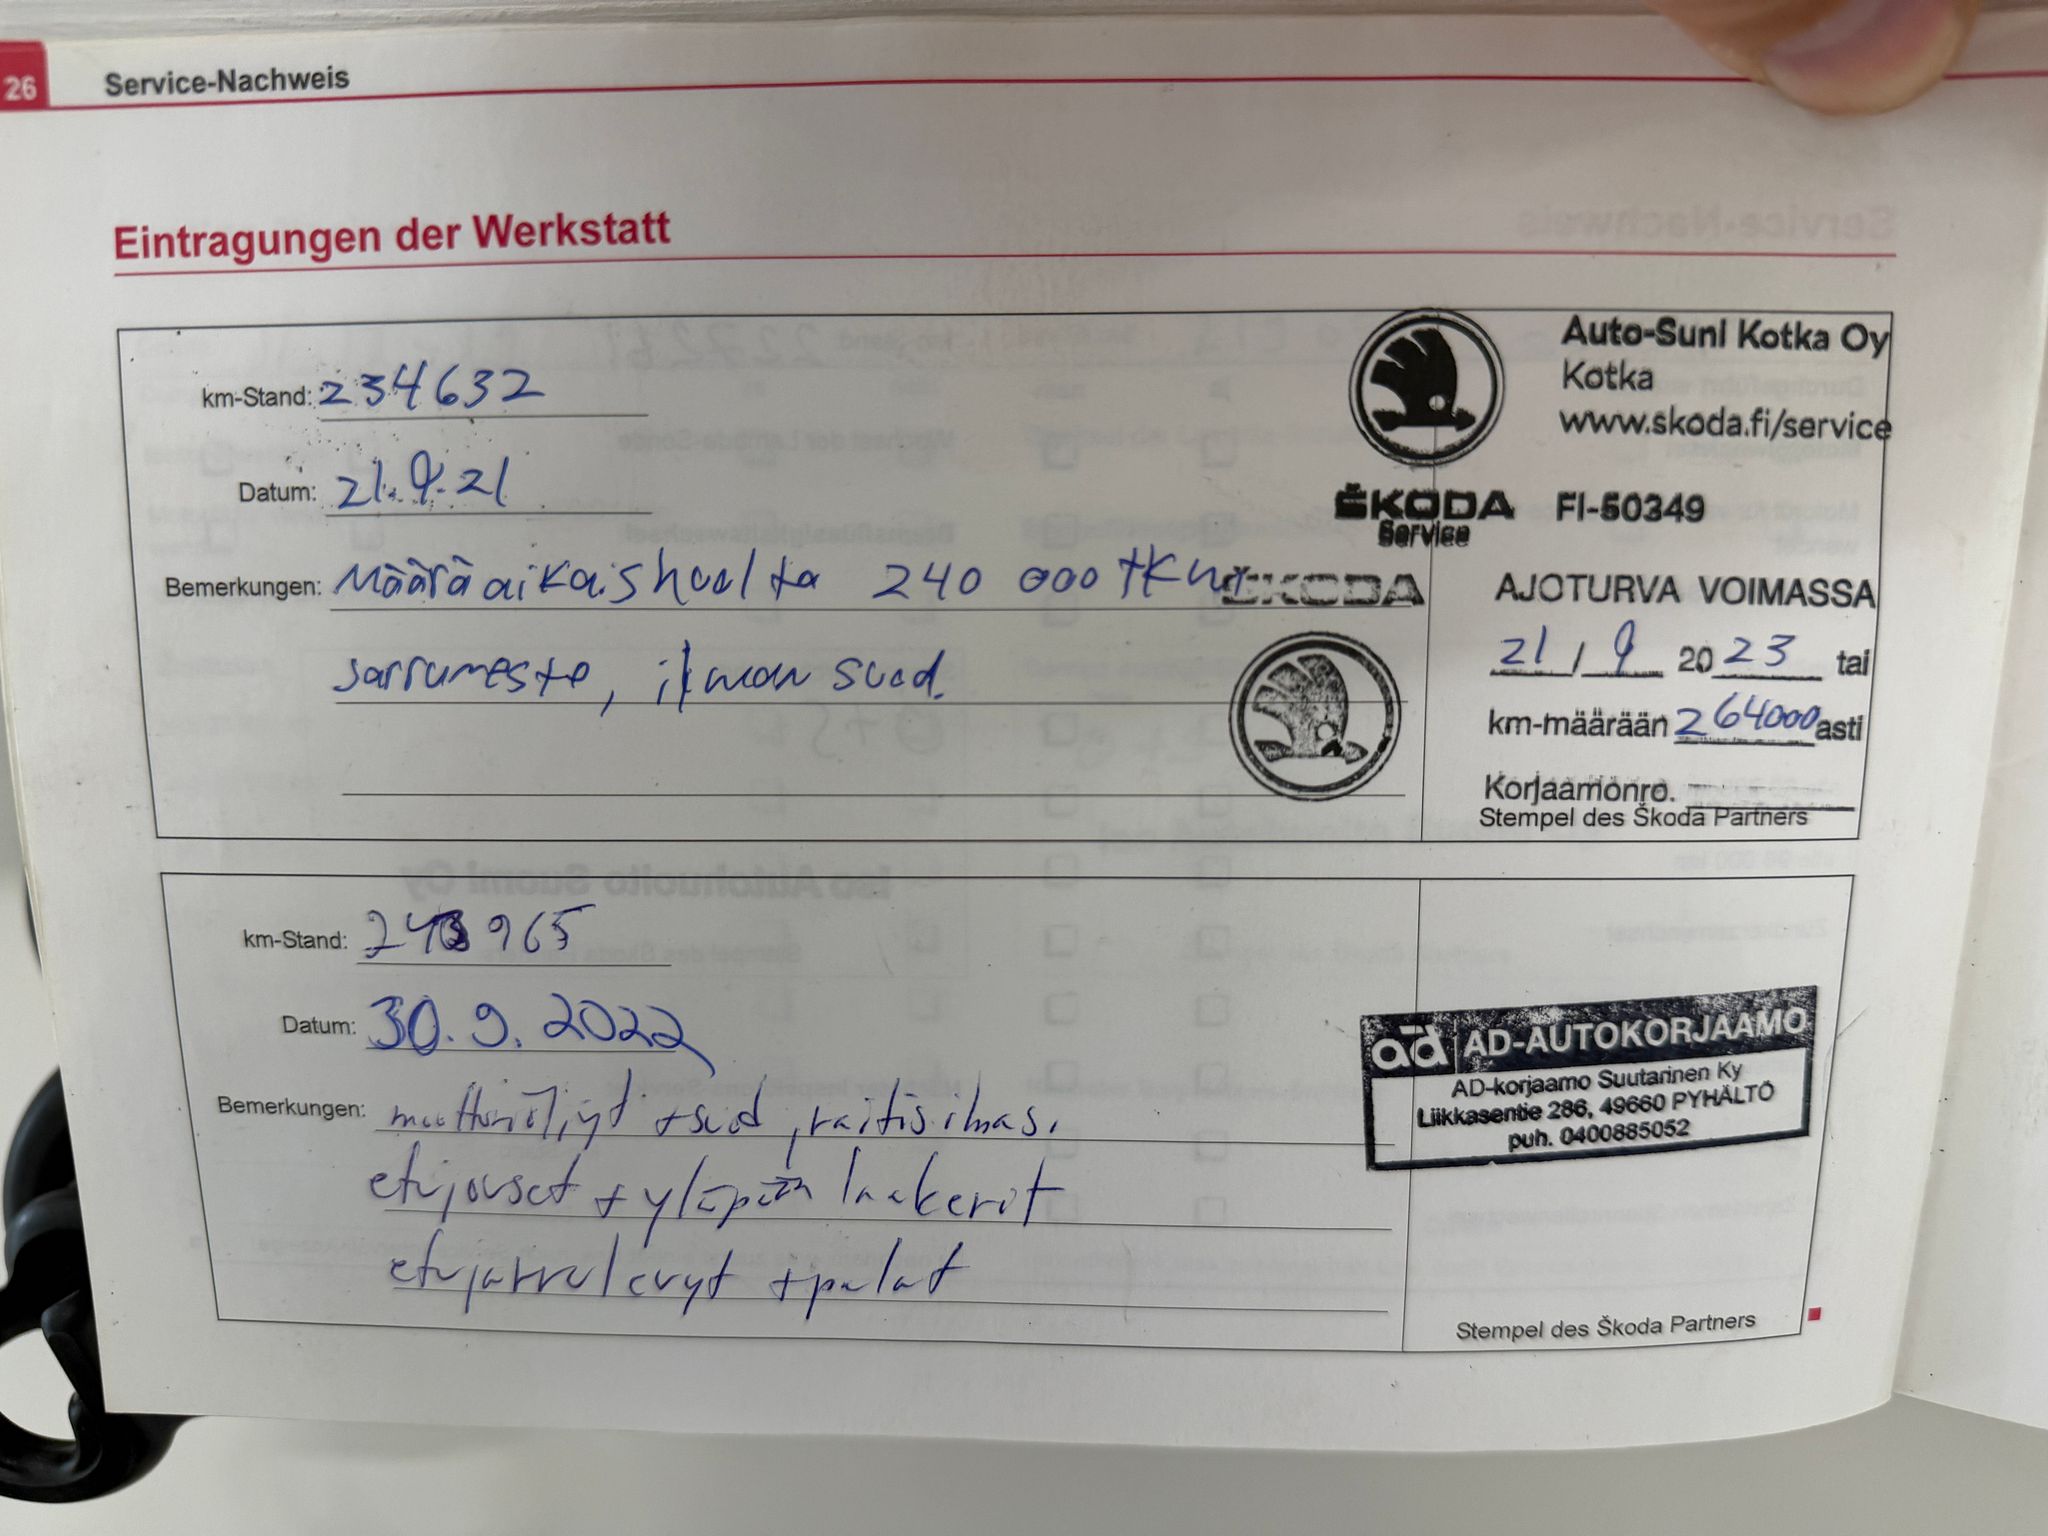 26 Service-Nachweis
Eintragungen der Werkstatt
km-Stand: 234632
Datum: 21.9.21
Bemerkungen: Määräaikaishuolta 240 000 tkm
Jarruneste, ilman suod.
Auto-Suni Kotka Oy
Kotka
www.skoda.fi/service
ŠKODA
Service
FI-50349
ŠKODA
AJOTURVA VOIMASSA
21 / 9 2023 tai
km-määrään 264000 asti
Korjaamonro.
Stempel des Škoda Partners
km-Stand: 243965
Datum: 30.9.2022
Bemerkungen: moottoriöljyt + suod, raitisilmas.
etujouset + yläpään laakerit
etujarrulevyt + palat
ad AD-AUTOKORJAAMO
AD-korjaamo Suutarinen Ky
Liikkasentie 286, 49660 PYHÄLTÖ
puh. 0400885052
Stempel des Škoda Partners